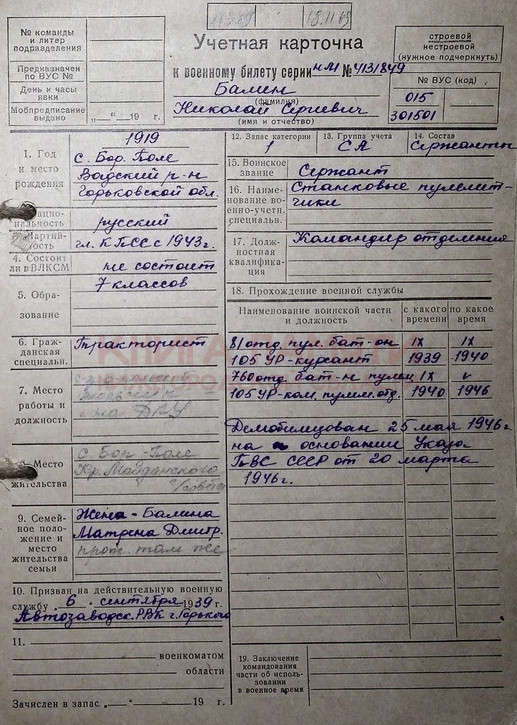 15.11.69
№ команды
и литер
подразделения
Предназначен
по ВУС №
День и часы
явки
Мобпредписание
выдано „ “ 19 г.
Учетная карточка
к военному билету серии НМ № 4131849
Балин
(фамилия)
Николай Сергеевич
(имя и отчество)
строевой
нестроевой
(нужное подчеркнуть)
№ ВУС (код)
015
301501
1. Год
и место
рождения
1919
с. Бор. Поле
Вадский р-н
Горьковской обл.
русский
чл. КПСС с 1943 г.
4. Состоит
ли в ВЛКСМ
не состоит
5. Образование
7 классов
6. Гражданская
специальн.
Тракторист
7. Место
работы и
должность
Место
жительства
с Бор-Поле
Кр. Майданского
с/совета
9. Семейное положение и
место
жительства
семьи
Жена - Балина
Матрена Дмитр.
прож. там же
10. Призван на действительную военную
службу 6 сентября 1939 г.
Автозаводск. РВК г. Горького
11.
военкоматом
области
Зачислен в запас „ “ 19 г.
12. Запас категории
1
13. Группа учета
СА
14. Состав
Сержанты
15. Воинское
звание
Сержант
16. Наименование военно-учетн.
специальн.
Станковые пулемет-
чики
17. Должностная
квалификация
Командир отделения
18. Прохождение военной службы
Наименование воинской части
и должность
с какого
времени
по какое
время
81 отд. пул. бат-он IX IX
105 УР-курсант 1939 1940
760 отд. бат-н пулем IX V
105 УР-ком. пулем. отд. 1940 1946
Демобилизован 25 мая 1946 г.
на основании Указа
ПВС СССР от 20 марта
1946 г.
19. Заключение
командования
части об использовании
в военное время